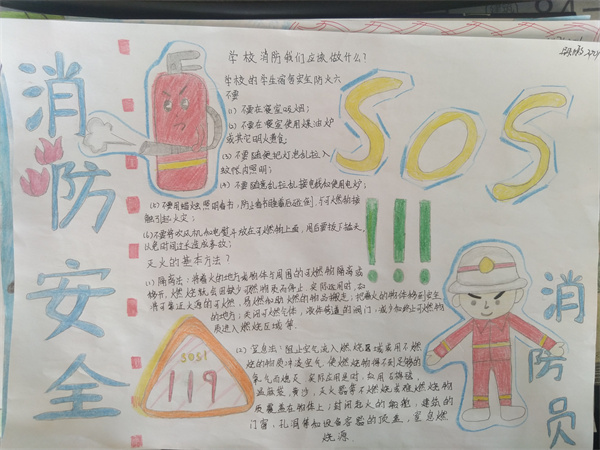 消防安全
学校消防我们应该做什么?
学校的学生宿舍安全防火六
不要
(1) 不要在寝室吸烟;
(2) 不要在寝室使用煤油炉
或其它明火煮食
(3) 不要随便把灯泡乱拉入
蚊帐内照明;
(4) 不要随意乱拉乱接电线和使用电炉;
(5) 不要用蜡烛照明看书;防止看书睡着后碰倒,与可燃物接
触引起火灾;
(6) 不要将吹风机和电熨斗放在可燃物上面,用后要拔下插头,
以免时间过长造成事故;
灭火的基本方法?
(1) 隔离法:将着火的地方或物体与周围的可燃物隔离或
移开,燃烧就会因缺少可燃物质而停止。实际运用时,如
将可靠近火源的可燃、易燃和助燃的物品搬走;把着火的物体移到安全
的地方;关闭可燃气体、液体管道的阀门,减少和终止可燃物
质进入燃烧区域等.
(2) 窒息法:阻止空气流入燃烧区域或用不燃
烧的物质冲淡空气,使燃烧物得不到足够的
氧气而熄灭
实际应用是时,如用石棉毯、
黄沙、灭火器等不燃烧或难燃烧物
质覆盖在物体上;封闭起火的船舱、建筑的
门窗、孔洞等和设备容器的顶盖,窒息燃
烧源.
SOS
!!!
SOS!
119
消防员